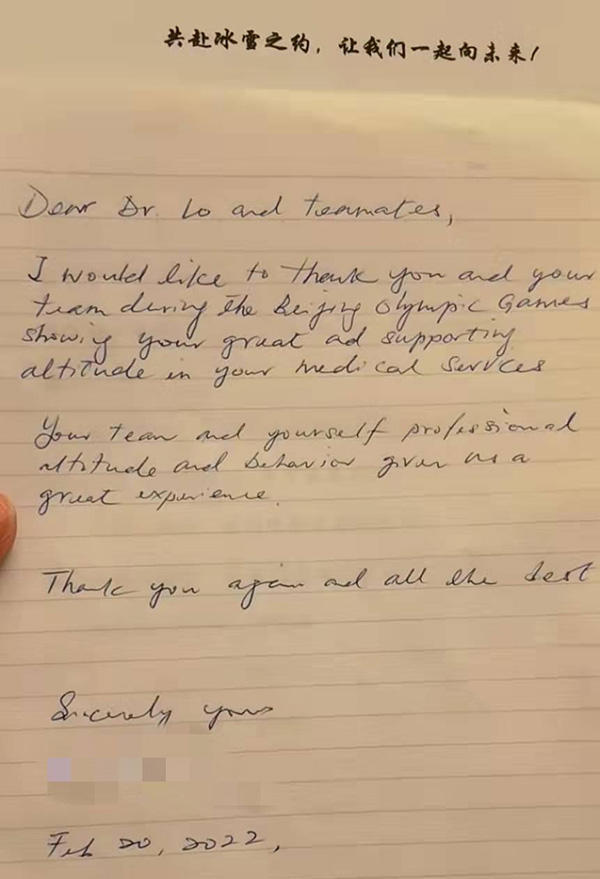 共赴冰雪之约，让我们一起向未来！
Dear Dr. Lo and teamates,
I would like to thank you and your
team during the Beijing Olympic Games
showing your great ad supporting
altitude in your medical servces
Your team and yourself professional
attitude and behavior given us a
great experience.
Thank you again and all the best
Sincerely yours
Feb 20, 2022,